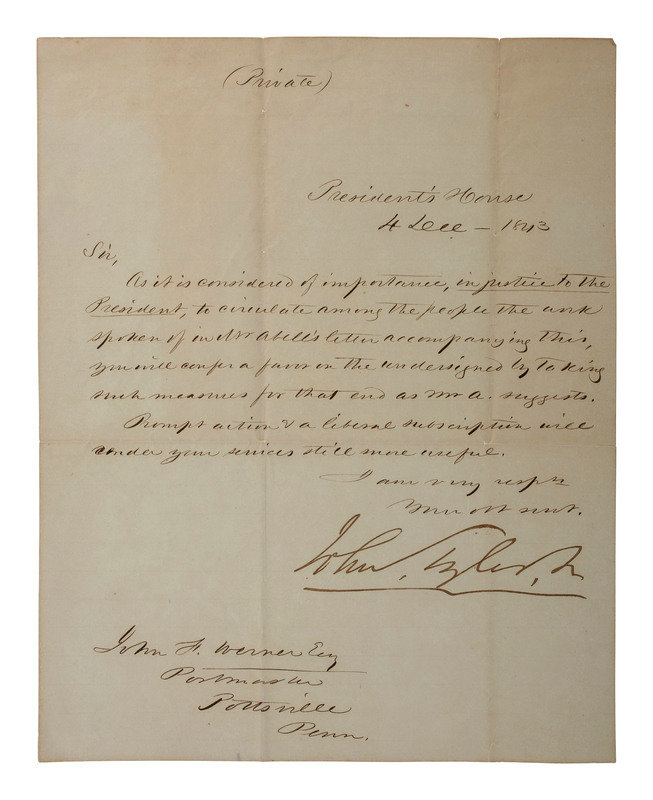 (Private)
President's House
4 Dec - 1843
Sir,
As it is considered of importance, in justice to the
President, to circulate among the people the work
spoken of in Mr Abell's letter accompanying this,
you will confer a favor on the undersigned by taking
such measures for that end as Mr A. suggests.
Prompt action & a liberal subscription will
render your services still more useful.
I am very respy
Your obt servt.
John Tyler, Jr
John F. Werner Esq
Postmaster
Pottsville
Penn.